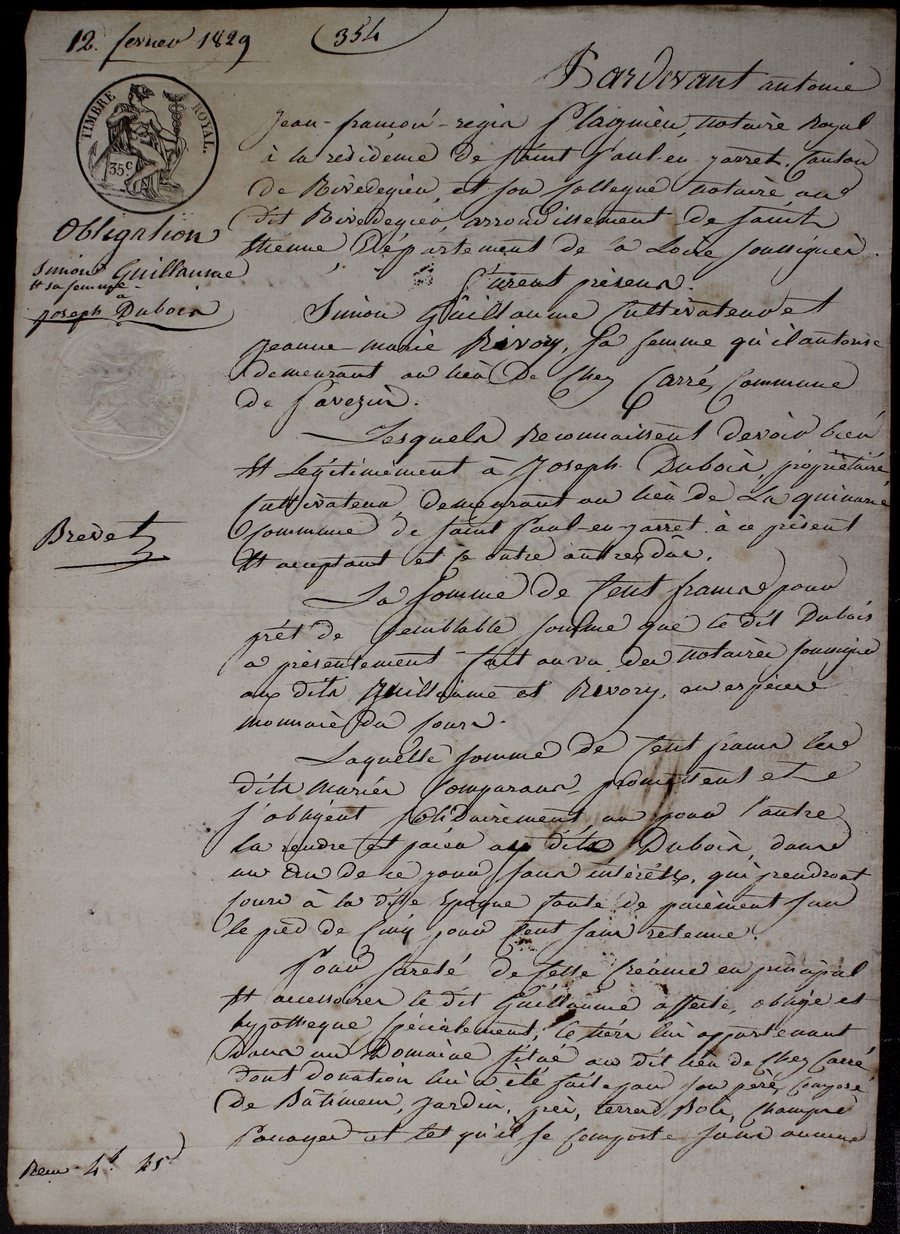 12. fevrier 1829
354
TIMBRE ROYAL.
35 C
Pardevant antoine
Jean-françois-régis Plagnieu, Notaire Royal
à la residence de Saint Paul-en-jarret, Canton
de Rivedegier, et son Collegue notaire au
dit Rivedegier, arrondissement de Saint
Etienne Département de la Loire soussignés.
Obligation
Simon Guillaume
Et sa femme
à
joseph Dubois
furent présens.
Simon Guillaume Cultivateur et
Jeanne-marie Rivory, Sa femme qu'il autorise
demeurant au lieu de Chez Carré, Commune
de Pavezin.
Lesquels Reconnaissent devoir bien
Et Légitimement à Joseph Dubois propriétaire
Cultivateur, demeurant au lieu de La
Commune de Saint Paul-en-jarret à ce présent
Et acceptant
Brevet
La Somme de Cent francs pour
prét de semblable somme que le dit Dubois
a présentement fait au vu des Notaires soussignés
aux dits Guillaume et Rivory, en espèces
monnaie du Cours.
Laquelle somme de Cent francs les
dits mariés Comparans, promettent et
s'obligent solidairement un pour l'autre
la rendre et païer au dit Dubois, dans
un an de ce jour, sans intérêts, qui prendront
Cours à la ditte Epoque faute de paiement sur
le pied de Cinq pour Cent sans retenue.
Pour sureté de Cette Créance en principal
Et accessoires le dit Guillaume affecte, oblige et
hypotheque spécialement, le tiers lui appartenant
Dans un Domaine situé au dit lieu de Chez Carré
dont donation lui a été faite par son père, Composé
de Bâtimens, Jardin, prés, terres Bois, Champs
Paturages et tel qu'il se Comporte sans aucune